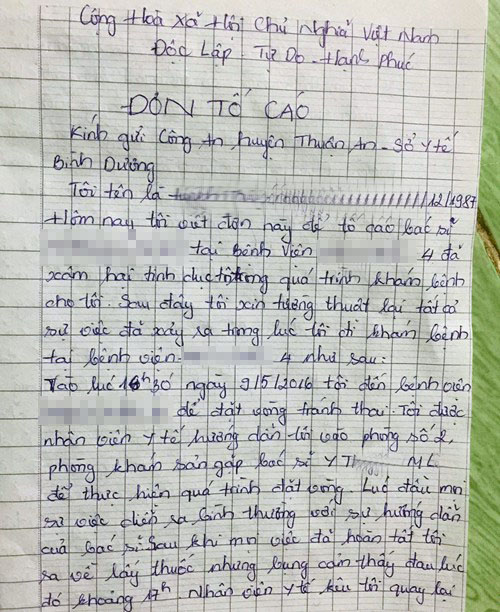 Cộng Hoà Xã Hội Chủ Nghĩa Việt Nam
Độc Lập - Tự Do - Hạnh Phúc
ĐƠN TỐ CÁO
Kính gửi Công An huyện Thuận An - Sở Y tế
Bình Dương
Tôi tên là 12/1987
Hôm nay tôi viết đơn này để tố cáo bác sĩ
tại Bệnh Viện 4 đã
xâm hại tình dục tôi trong quá trình khám bệnh
cho tôi. Sau đây tôi xin tường thuật lại tất cả
sự việc đã xảy ra trong lúc tôi đi khám bệnh
tại bệnh viện 4 như sau:
Vào lúc 16h30 ngày 9/5/2016 tôi đến bệnh viện
để đặt vòng tránh thai. Tôi được
nhân viên y tế hướng dẫn tôi vào phòng số 2,
phòng khám sản gặp bác sĩ Y Th ML
để thực hiện quá trình đặt vòng. Lúc đầu mọi
sự việc diễn ra bình thường với sự hướng dẫn
của bác sĩ. Sau khi mọi việc đã hoàn tất tôi
ra về lấy thuốc nhưng bụng cảm thấy đau lúc
đó khoảng 17h Nhân viên y tế kêu tôi quay lại